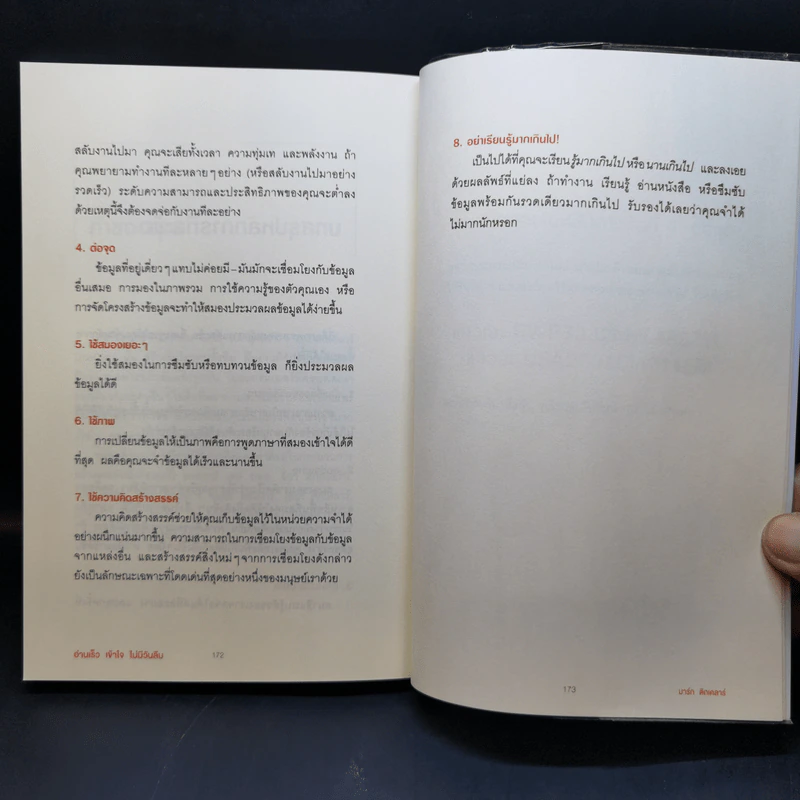 สลับงานไปมา คุณจะเสียทั้งเวลา ความทุ่มเท และพลังงาน ถ้า
คุณพยายามทำงานทีละหลายๆอย่าง (หรือสลับงานไปมาอย่าง
รวดเร็ว) ระดับความสามารถและประสิทธิภาพของคุณจะต่ำลง
ด้วยเหตุนี้จึงต้องจดจ่อกับงานทีละอย่าง
4. ต่อจุด
ข้อมูลที่อยู่เดี่ยวๆแทบไม่ค่อยมี – มันมักจะเชื่อมโยงกับข้อมูล
อื่นเสมอ การมองในภาพรวม การใช้ความรู้ของตัวคุณเอง หรือ
การจัดโครงสร้างข้อมูลจะทำให้สมองประมวลผลข้อมูลได้ง่ายขึ้น
5. ใช้สมองเยอะๆ
ยิ่งใช้สมองในการซึมซับหรือทบทวนข้อมูล ก็ยิ่งประมวลผล
ข้อมูลได้ดี
6. ใช้ภาพ
การเปลี่ยนข้อมูลให้เป็นภาพคือการพูดภาษาที่สมองเข้าใจได้ดี
ที่สุด ผลคือคุณจะจำข้อมูลได้เร็วและนานขึ้น
7. ใช้ความคิดสร้างสรรค์
ความคิดสร้างสรรค์ช่วยให้คุณเก็บข้อมูลไว้ในหน่วยความจำได้
อย่างผนึกแน่นมากขึ้น ความสามารถในการเชื่อมโยงข้อมูลกับข้อมูล
จากแหล่งอื่น และสร้างสรรค์สิ่งใหม่ๆจากการเชื่อมโยงดังกล่าว
ยังเป็นลักษณะเฉพาะที่โดดเด่นที่สุดอย่างหนึ่งของมนุษย์เราด้วย
อ่านเร็ว เข้าใจ ไม่มีวันลืม 172
8. อย่าเรียนรู้มากเกินไป!
เป็นไปได้ที่คุณจะเรียนรู้มากเกินไปหรือนานเกินไป และลงเอย
ด้วยผลลัพธ์ที่แย่ลง ถ้าทำงาน เรียนรู้ อ่านหนังสือ หรือซึมซับ
ข้อมูลพร้อมกันรวดเดียวมากเกินไป รับรองได้เลยว่าคุณจำได้
ไม่มากนักหรอก
173 มาร์ก ติกเคลาร์